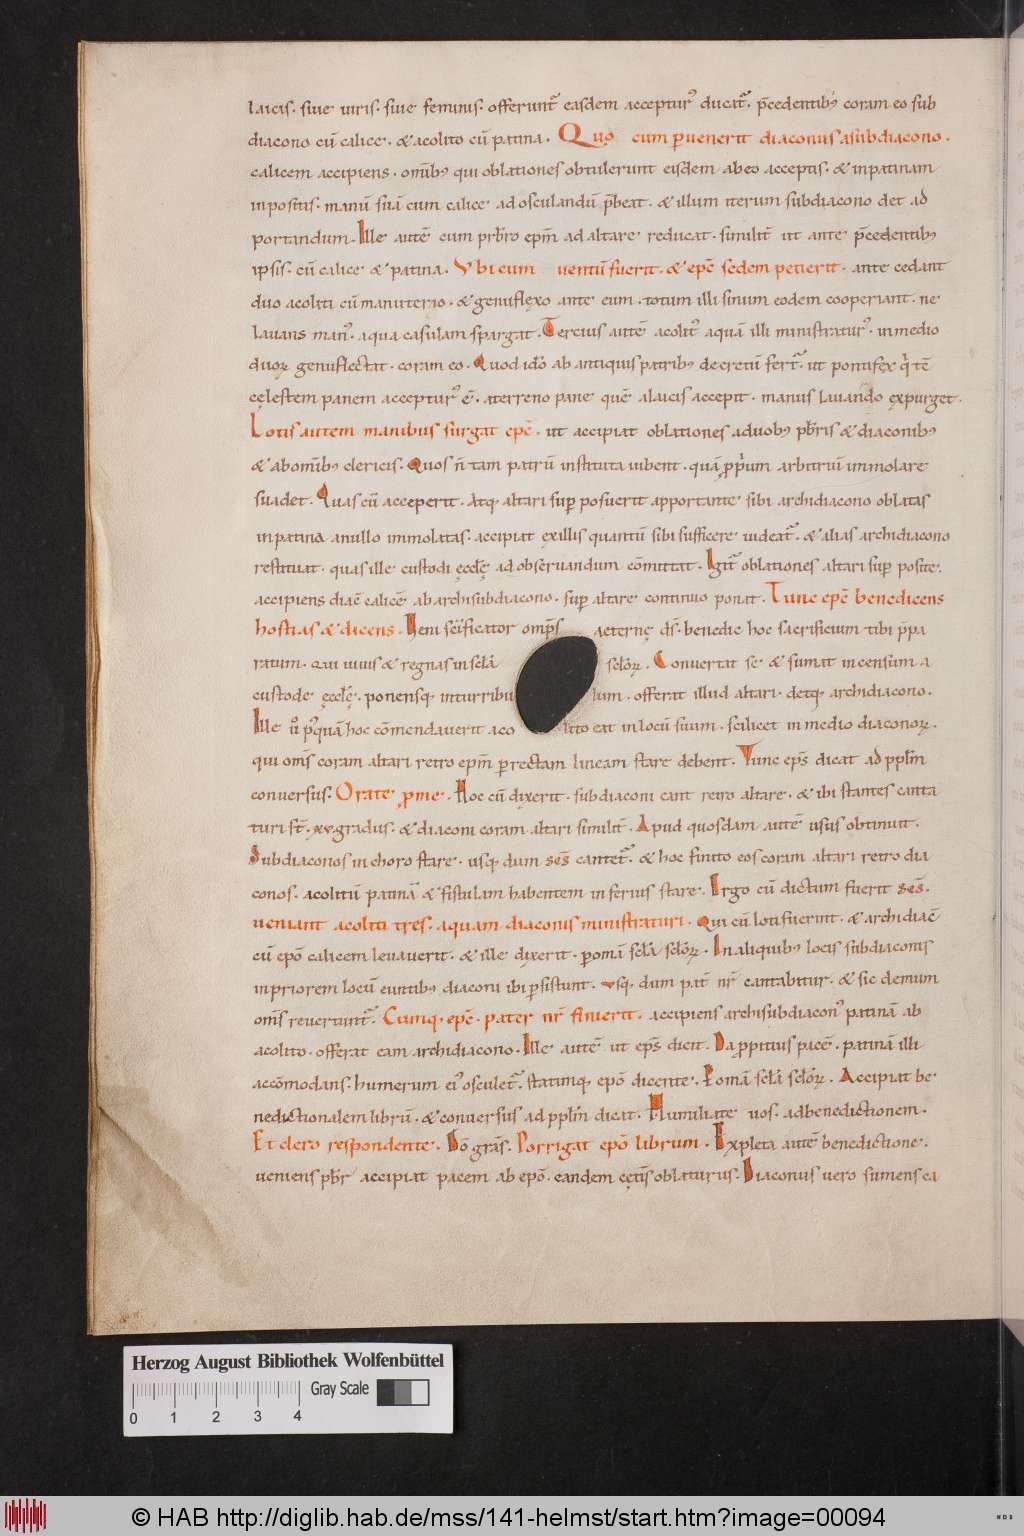 laicis. siue uiris. siue feminis. offerunt᷑ easdem acceptur᷒ ducat᷑. p̄cedentib; coram eo sub
diacono cū calice. & acolito cū patina. Quo cum peruenerit diaconus a subdiacono.
calicem accipiens. omīb; qui oblationes obtulerunt eisdem ab eo acceptis. & in patinam
inpositis. manū suā cum calice ad osculandū p̄beat. & illum iterum subdiacono det ad
portandum. Ille autē cum prb̄ro ep̄m ad altare reducat. similit̄ ut ante p̄cedentib;
ipsis. cū calice & patina. Vbi cum uentū fuerit. & ep̄c sedem petierit. ante cedant
duo acoliti cū manuterio. & genuflexo ante eum. totum illi sinum eodem cooperiant. ne
lauans man᷒. aqua casulam spargat. Tercius autē acolit᷒ aquā illi ministratur᷒. in medio
duoꝝ genuflectat. coram eo. Quod ido ab antiquis patrib; decretū fert᷑. ut pontifex q' tē
cęlestem panem acceptur᷒ ē. a terreno pane quē a laicis accepit. manus lauando ęxpurget.
Lotis autem manibus surgat epc̄. ut accipiat oblationes a duob; pb̄ris & diaconib;
& ab omīb; clericis. Quos n̄ tam patrū instituta iubent. quā ꝓprium arbitriū immolare
suadet. Quas cū acceperit. Atq; altari suꝑ posuerit apportante sibi archidiacono oblatas
in patina a nullo immolatas. accipiat ęx illis quantū sibi sufficere uideat᷑. & alias archidiacono
restituat. quas ille custodi ęcclę̄ ad obseruandum cōmittat. Igit᷑ oblationes altari suꝑ posite.
accipiens diac̄ calicē ab archisubdiacono. suꝑ altare continuo ponat. Tunc epc̄ benedicens
hostias & dicens. Ueni sc̄ificator omp̄s aeternę ds̄. benedic hoc sacrificium tibi p̄pa
ratum. Qui uiuis & regnas in scl̄a scl̄oꝝ. Conuertat se & sumat incensum a
custode ęcclę̄. ponensq; in turribu lum. offerat illud altari. detq; archidiacono.
Ille u᷒ p᷒quā hoc cōmendauerit aco lito eat in locū suum. scilicet in medio diaconoꝝ.
qui om̄s coram altari retro ep̄m ꝑ rectam lineam stare debent. Tunc ep̄s dicat ad ppl̄m
conuersus. Orate ꝓ me. Hoc cū dixerit. subdiaconi eant retro altare. & ibi stantes canta
turi st̄. xv gradus. & diaconi coram altari similit̄. Apud quosdam autē usus obtinuit.
Subdiaconos in choro stare. usq; dum ses̄ cantet᷑. & hoc finito eos coram altari retro dia
conos. acolitū patinā & fistulam habentem inferius stare. Ergo cū dictum fuerit ses̄.
ueniant acoliti tres. aquam diaconis ministraturi. Qui cū loti fuerint. & archidiac̄
cū epō calicem leuauerit. & ille dixerit. ꝑ omā scl̄a scl̄oꝝ. In aliquib; locis subdiaconis
in priorem locū euntib; diaconi ibi ꝑsistunt. usq; dum pat̄ nr̄ cantabitur. & sic demum
om̄s reuertunt᷑. Cumq; epc̄. pater nr̄ finierit. accipiens archisubdiacon᷒ patinā ab
acolito. offerat eam archidiacono. Ille autē ut ep̄s dicit. Da ꝓpitius pacē. patinā illi
accōmodans. humerum ei᷒ osculet᷑. statimq; epō dicente. Ꝑ omā scl̄a scl̄oꝝ. Accipiat be
nedictionalem librū. & conuersus ad ppl̄m dicat. Humiliate uos. ad benedictionem.
Et clero respondente. Dō grās. Porrigat epō librum. Expleta autē benedictione.
ueniens pb̄r accipiat pacem ab epō. eandem cęt̄is oblaturus. Diaconus uero sumens ea
Herzog August Bibliothek Wolfenbüttel
Gray Scale
0 1 2 3 4
© HAB http://diglib.hab.de/mss/141-helmst/start.htm?image=00094